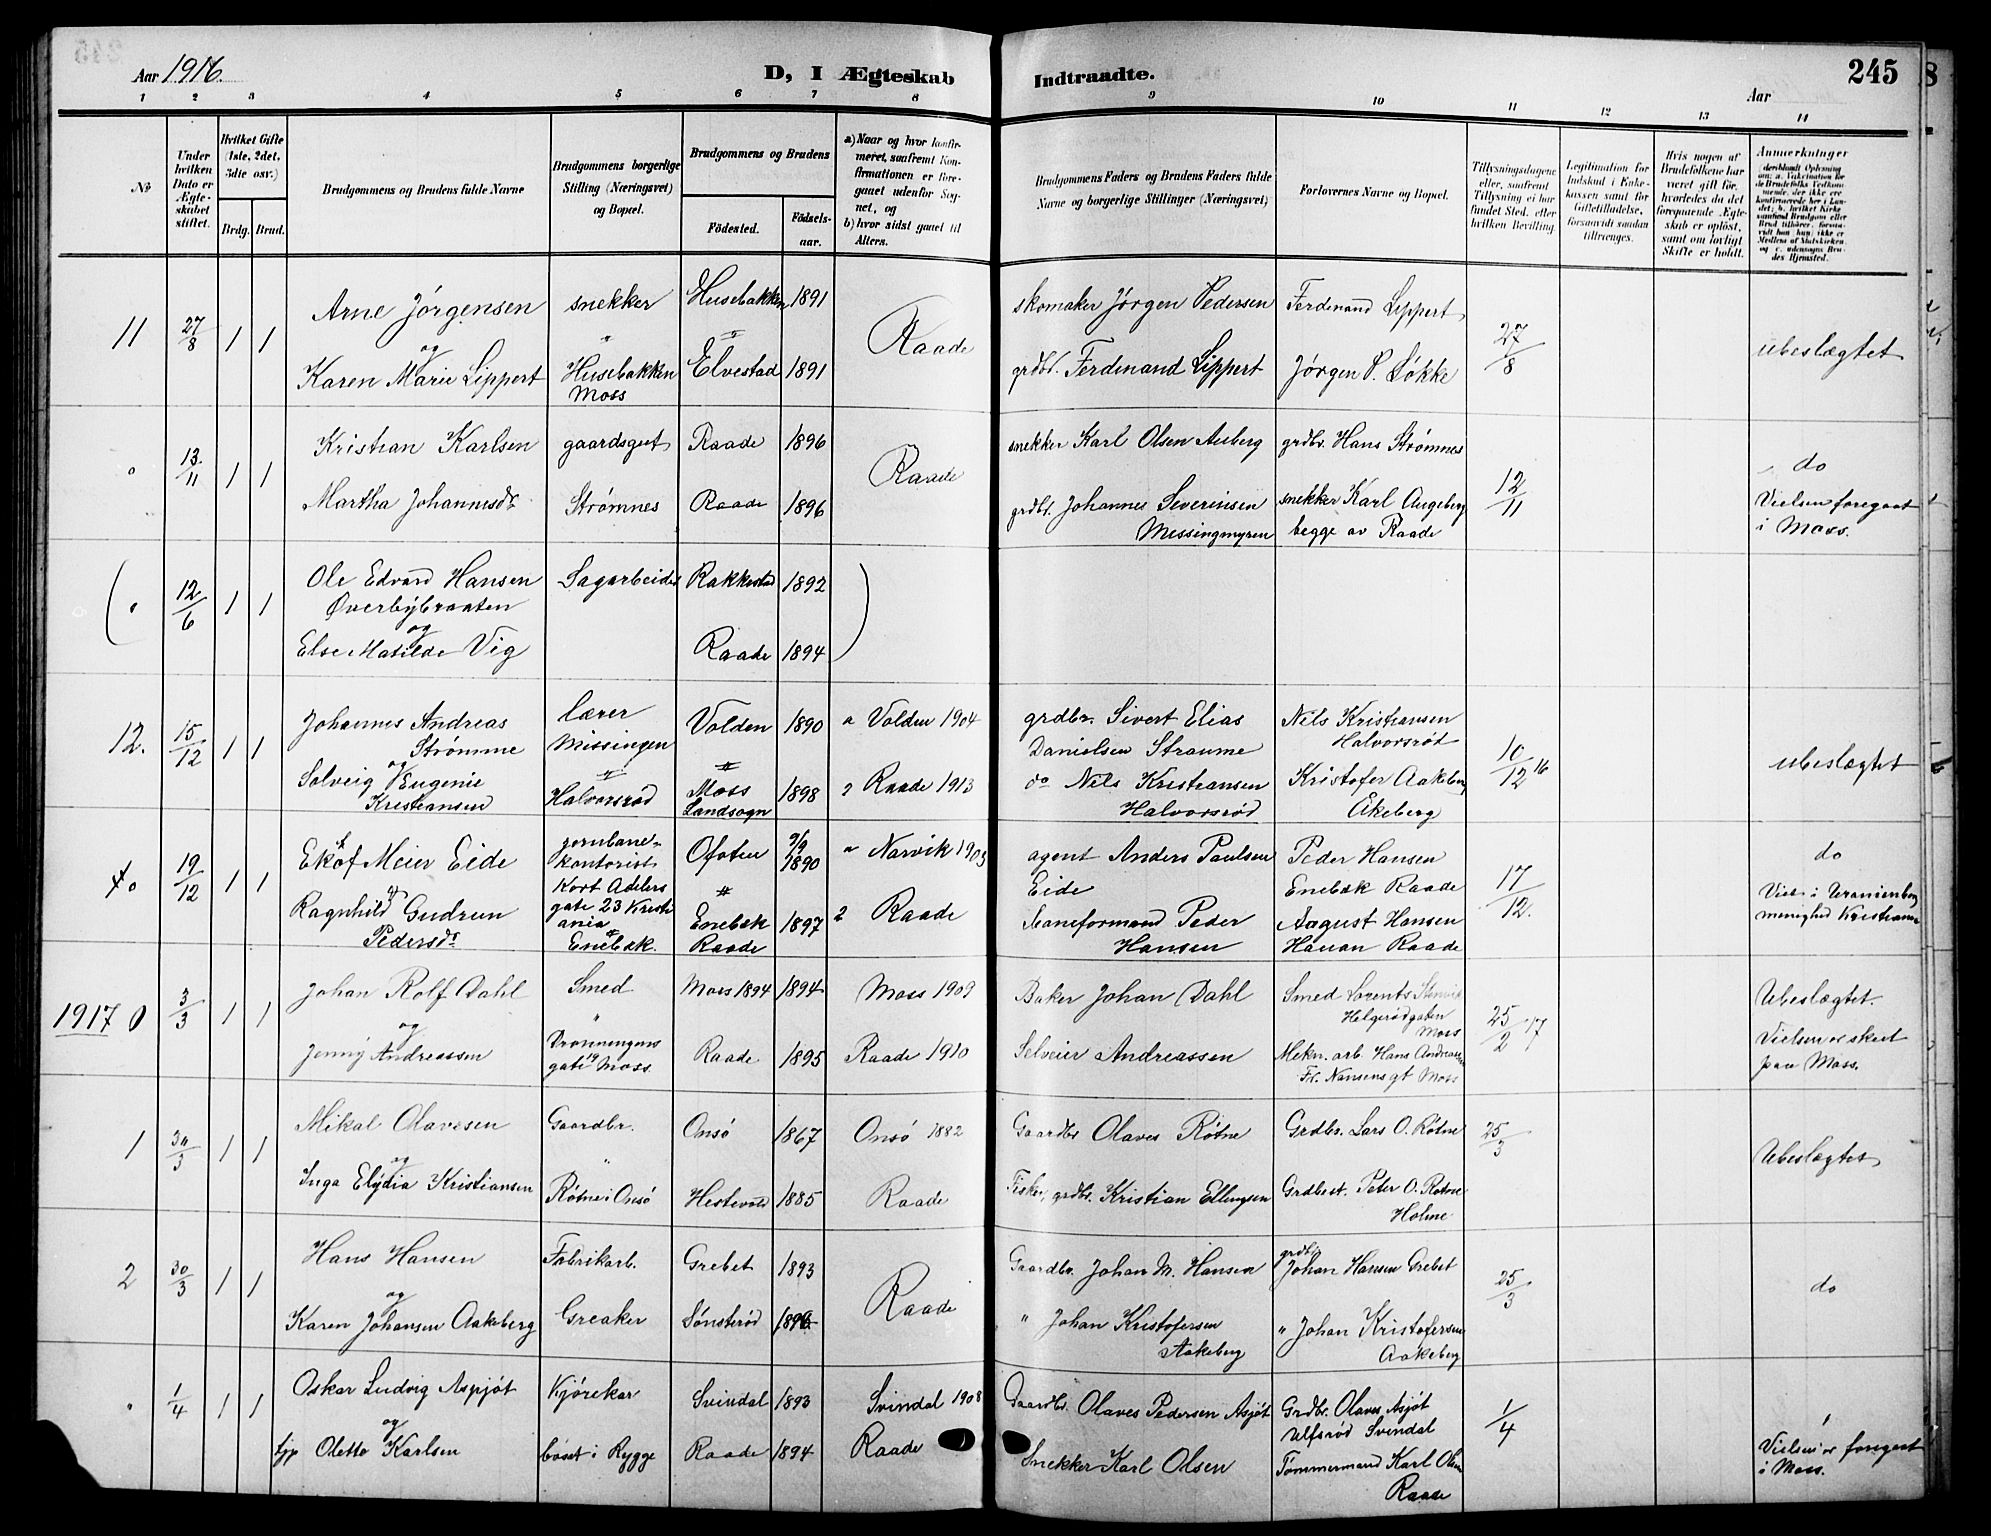 Aar 1916.
D, I Ægteskab
Indtraadte.
Aar
245
1 2 3 4 5 6 7 8 9 10 11 12 13 14
No
Under hvilken Dato er Ægteskabet stiftet.
Hvilket Gifte (1ste, 2det, 3die osv.)
Brdg. Brud.
Brudgommens og Brudens fulde Navne
Brudgommens borgerlige Stilling (Næringsvei) og Bopæl.
Brudgommens og Brudens
Fødested.
Fødselsaar.
a) Naar og hvor konfirmeret, saafremt Konfirmationen er foregaaet udenfor Sognet, og
b) hvor sidst gaaet til Alters.
Brudgommens Faders og Brudens Faders fulde Navne og borgerlige Stillinger (Næringsvei)
Forlovernes Navne og Bopæl.
Tillysningsdagene eller, saafremt Tillysning ei har fundet Sted, efter hvilken Bevilling.
Legitimation for Indskud i Enkekassen samt for Giftetilladelse, forsaavidt saadan tiltrænges.
Hvis nogen af Brudefolkene har været gift før, hvorledes da det foregaaende Ægteskab er opløst, samt om lovligt Skifte er holdt.
Anmærkninger
11 27/8 1 1 Arne Jörgensen snekker Husebakken 1891 Raade skomaker Jörgen Pedersen Ferdinand Lippert 27/8 ubeslægtet
og
Karen Marie Lippert Husebakken Moss Elvestad 1891 grdbr. Ferdinand Lippert Jörgen P. Løkke
" 13/11 1 1 Kristian Karlsen gaardsgut Raade 1896 Raade snekker Karl Olsen Auberg grdbr. Hans Strømnes 12/11 do
Martha Johannesdr Strømnes Raade 1896 grdbr. Johannes Severinsen Missingmyren snekker Karl Augeberg begge av Raade Vielsen foregaat i Moss.
( " 12/6 1 1 Ole Edvard Hansen Sagarbeider Rakkestad 1892 )
Øverbybraaten
og
Else Matilde Vig Raade 1894
12. 15/12 1 1 Johannes Andreas Strømme lærer Missingen Volden 1890 a Volden 1904 grdbr. Sivert Elias Danielsen Straume Nils Kristiansen Halvorsrød 10/12 16 ubeslægtet
og
Solveig Eugenie Kristiansen Halvorsrød Moss Landsogn 1898 Raade 1913 do Nils Kristiansen Halvorsrød Kristofer Aakeberg Akeberg
19/12 1 1 Meier Eide jernbanekontorist Kort Adelers gate 23 Kristiania Ofoten 9/9 1890 a Narvik 1905 agent Anders Paulsen Eide Peder Hansen Enebæk Raade 17/12. do
og
Ragnhild Gudrun Pedersdr Enebæk. Enebæk Raade 1897 Raade Baneformand Peder Hansen August Hansen Hauan Raade Viet i Uranienborg menighed Kristiania
1917 0 3/3 1 1 Johan Rolf Dahl Smed Moss 1894 1894 Moss 1909 Baker Johan Dahl Smed Lorents Helgerødgaten Moss 25/2 17 Ubeslægtet.
og
Jenny Andreassen Dronningens gate 19 Moss Raade 1895 Raade 1910 Selveier Andreassen Mekn. arb. Hans Andreassen Fr. Nansens gt Moss Vielsen er skeet paa Moss.
1 30/3 1 1 Mikal Olavesen Gaardbr. Onsö 1867 Onsö 1882 Gaardbr Olaves Røtne Grdbr. Lars O. Røtne 25/3 Ubeslægtet
og
Inga Elydia Kristiansen Røtne i Onsö Hestevold 1885 Raade Fisker, grdbr. Kristian Ellingsen Grdbest. Peter O. Røtne Holme
2 30/3 1 1 Hans Hansen Fabrikarb. Grebet 1893 Raade Gaardbr. Johan M. Hansen grdbr Johan Hansen Grebet 25/3 do
og
Karen Johansen Aakeberg Greaker Sønsterød 1896 " Johan Kristofersen Aakeberg " Johan Kristofersen Aakeberg
" 1/4 1 1 Oskar Ludvig Aspjöt Kjörekar Svindal 1893 Svindal 1908 Gaardbr. Olaves Pedersen Asjöt Grdbr. Olaves Asjöt Ulfsrød Svindal 1/4
og
tjp Olette Karlsen bosat i Rygge Raade 1894 Raade Snekker Karl Olsen Tømmermand Karl Olsen Raade Vielsen er foregaat i Moss.